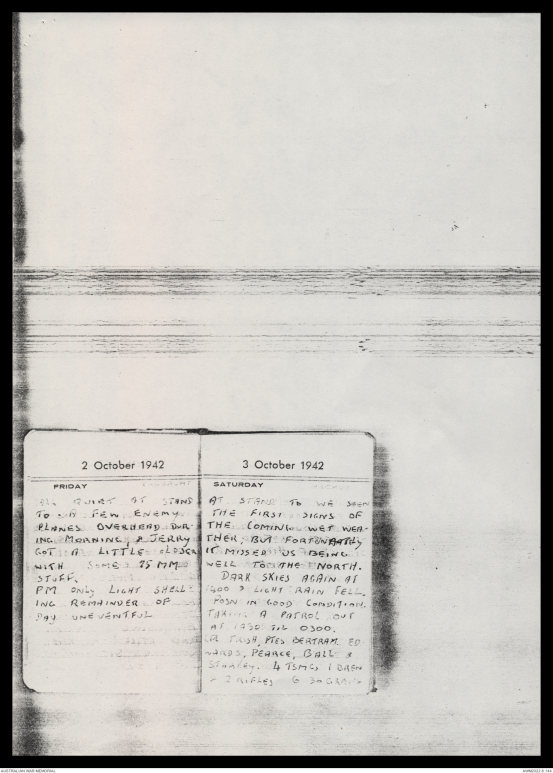 2 October 1942
FRIDAY
ALL QUIET AT STAND
TO & FEW ENEMY
PLANES OVERHEAD DUR-
ING MORNING & JERRY
GOT A LITTLE CLOSER
WITH SOME 75 MM
STUFF.
PM ONLY LIGHT SHELL-
ING REMAINDER OF
DAY UNEVENTFUL
3 October 1942
SATURDAY
AT STAND TO WE SEEN
THE FIRST SIGNS OF
THE COMING WET WEA-
THER, BUT FORTUNATELY
IT MISSED US BEING
WELL TO THE NORTH.
DARK SKIES AGAIN AT
1400 & LIGHT RAIN FELL.
POSN IN GOOD CONDITION.
TAKING A PATROL OUT
AT 1930 TIL 0300.
PTES BERTRAM, ED
WARDS, PEARCE, BALL &
STARLEY. 4 TSMGS 1 BREN
& 2 RIFLES 6 36 GRANS
AUSTRALIAN WAR MEMORIAL